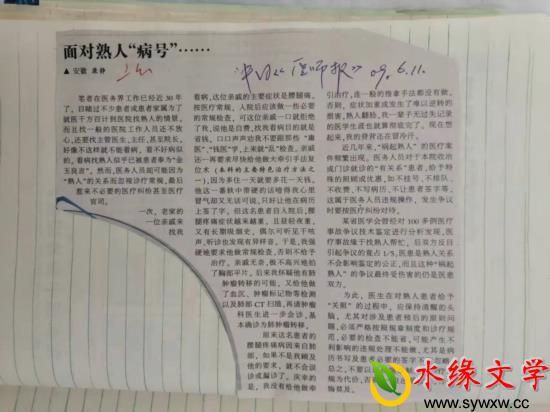 面对熟人“病号”……
▲安徽
《医师报》 09.6.11.
笔者在医务界工作已经近30年
了，目睹过不少患者或患者家属为了
就医千方百计到医院找熟人的情景，
而且找一般的医院工作人员还不放
心，还要找主管医生、主任，甚至院长，
好像不这样就不能看病，看不好病似
的。看病找熟人似乎已被患者奉为“金
玉良言”。然而，医务人员却可能因为
“熟人”的关系而忽视诊疗常规，最后
惹来不必要的医疗纠纷甚至医疗
官司。
一次，老家的
一位亲戚来
找我
看病，这位亲戚的主要症状是腰腿痛，
按医疗常规，入院后应该做一些必要
的常规检查，可这位亲戚一口就拒绝
了我，说他是自费，找我看病目的就是
省钱，口口声声劝我不要跟那些“庸
医”，“钱医”学，上来就“乱”检查。亲戚
还一再要求尽快给他做大牵引手法复
位术（本科的主要特色治疗方法之
一），因为多住一天就要多花一天钱。
他这一番软中带硬的话噎得我心里
冒气却又无话可说，只好让他在病历
上签了字。但这名患者自入院后，腰
腿疼痛症状越来越重，且昼轻夜重，
又有长期吸烟史，偶尔可听见干咳
声，听诊也发现有异样音。于是，我强
硬地要求他做常规检查，否则不给予
治疗，亲戚无奈，极不高兴地拍
了胸部平片，后来我怀疑他有肺
肿瘤转移的可能，又给他做
了血沉、肿瘤标记物等检测
以及肺部CT扫描，再请肿瘤
科医生进一步会诊，基
本确诊为肺肿瘤转移。
原来这名患者的
腰腿疼痛病因来自肺
部，如果不是我顾及
他的要求，就不会误
诊或漏诊了，庆幸的
是，我没有给他做牵
引治疗，连一般的推拿手法都没有做。
否则，症状加重或发生了难以逆转的
损害，熟人翻脸，我一辈子无过失记录
的医学生涯也就算彻底完了。现在想
起来，我的脊背还在冒冷汗。
近几年来，“祸起熟人”的医疗案
件频繁出现。医务人员对于本院政治
或门诊就诊的“有关系”患者，给予特
殊的照顾或优惠，如不挂号、不排队、
不收费、不写病历、不让患者签字等，
这属于医务人员违规操作，发生争议
时要按医疗纠纷对待。
某省医学会曾经对100多例医疗
事故争议技术鉴定进行分析发现，医
疗事故缘于找熟人帮忙，后双方反目
引起争议的竟占1/5。医患是熟人关系
不会影响鉴定的公正，而且这种“祸起
熟人”的争议最终受伤害的仍是医患
双方。
为此，医生在对熟人患者给予
“关照”的过程中，应保持清醒的头
脑，尤其对涉及患者预后的原则问
题，必须严格按照规章制度和诊疗规
范，必要的检查不能省，可能产生不
利影响的违规处理不能做，尤其是病
历书写及患者必要的签字不
总之，不要以
规为代价，否
悔莫及。
水缘文学
www.sywxw.cc